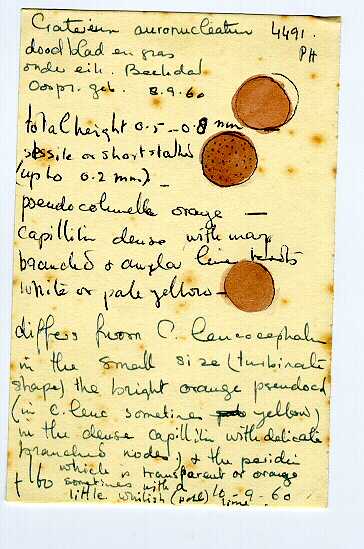 Craterium auronucleatum 4491.
dood blad en gras PH
onder eik. Beekdal
Oorpr. geb. 8.9.60
total height 0.5 - 0.8 mm
sessile or short stalked
(up to 0.2 mm) -
pseudocolumella orange -
capillitium dense with many
branched & angular lime knots
white or pale yellow -
differs from C. leucocephalum
in the small size (turbinate
shape) the bright orange pseudocol
(in C. leuc sometimes yellow)
in the dense capillitium with delicate
branched nodes) & the peridium
which is transparent or orange
+ bo sometimes with a
little whitish lime. 10-9-60